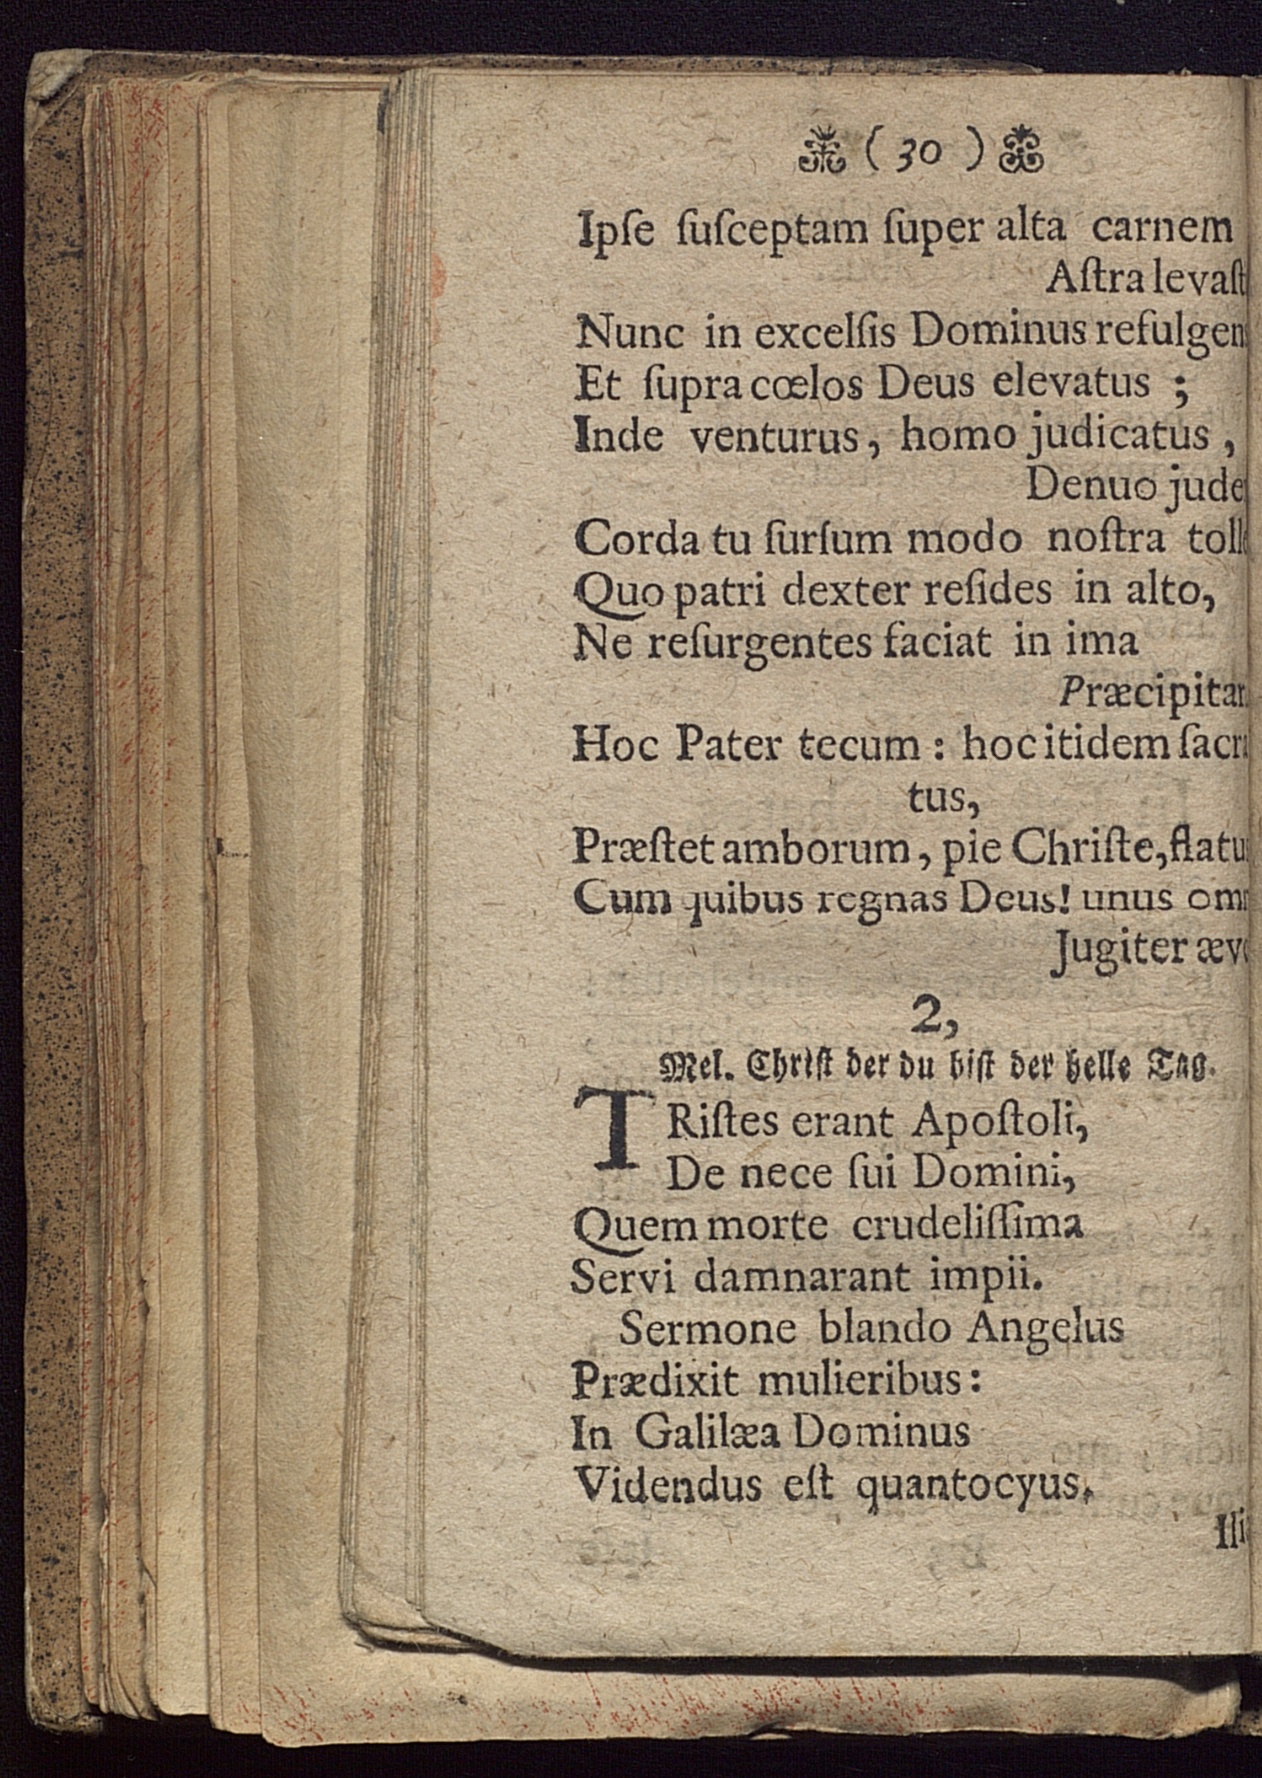 ( 30 )
Ipſe ſuſceptam ſuper alta carnem
Aſtra levaſt
Nunc in excelſis Dominus refulgen
Et ſupra cœlos Deus elevatus ;
Inde venturus, homo judicatus ,
Denuo jude
Corda tu ſurſum modo noſtra toll
Quo patri dexter reſides in alto,
Ne reſurgentes faciat in ima
Præcipitan
Hoc Pater tecum : hoc itidem ſacr
tus,
Præſtet amborum, pie Chriſte, flatu
Cum quibus regnas Deus! unus om
Jugiter æv
2,
Mel. Chriſt der du biſt der helle Tag.
TRiſtes erant Apoſtoli,
De nece ſui Domini,
Quem morte crudeliſſima
Servi damnarant impii.
Sermone blando Angelus
Prædixit mulieribus :
In Galilæa Dominus
Videndus eſt quantocyus.
Ili